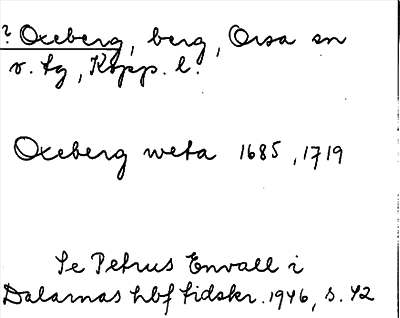 ? Oxeberg, berg, Orsa sn
v. tg, Kopp. l.
Oxeberg weta 1685, 1719
Se Petrus Envall i
Dalarnas hbf tidskr. 1946, s. 42